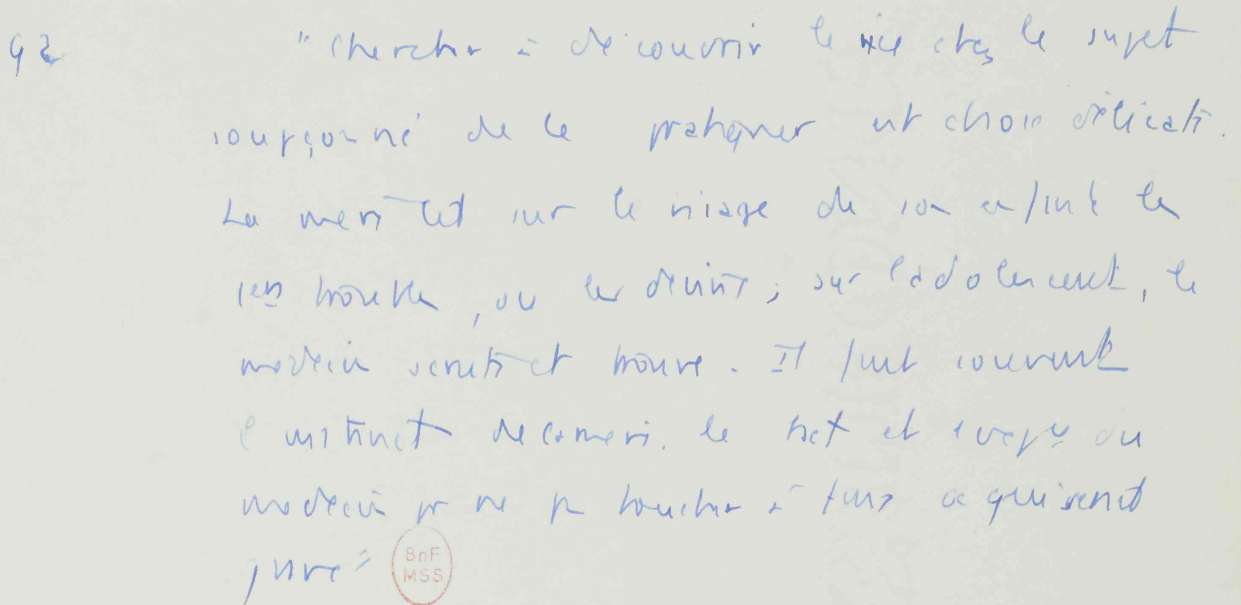 92 "Chercher à découvrir le vice chez le sujet
soupçonné de le pratiquer est chose délicate.
La mère lit sur le visage de son enfant les
1ers troubles, ou les devine; sur l'adolescent, le
médecin scrute et trouve. Il faut souvent
l'instinct de la mère, le tact et du
médecin pr ne pas toucher à faux ce qui serait
grave"
BnF
MSS